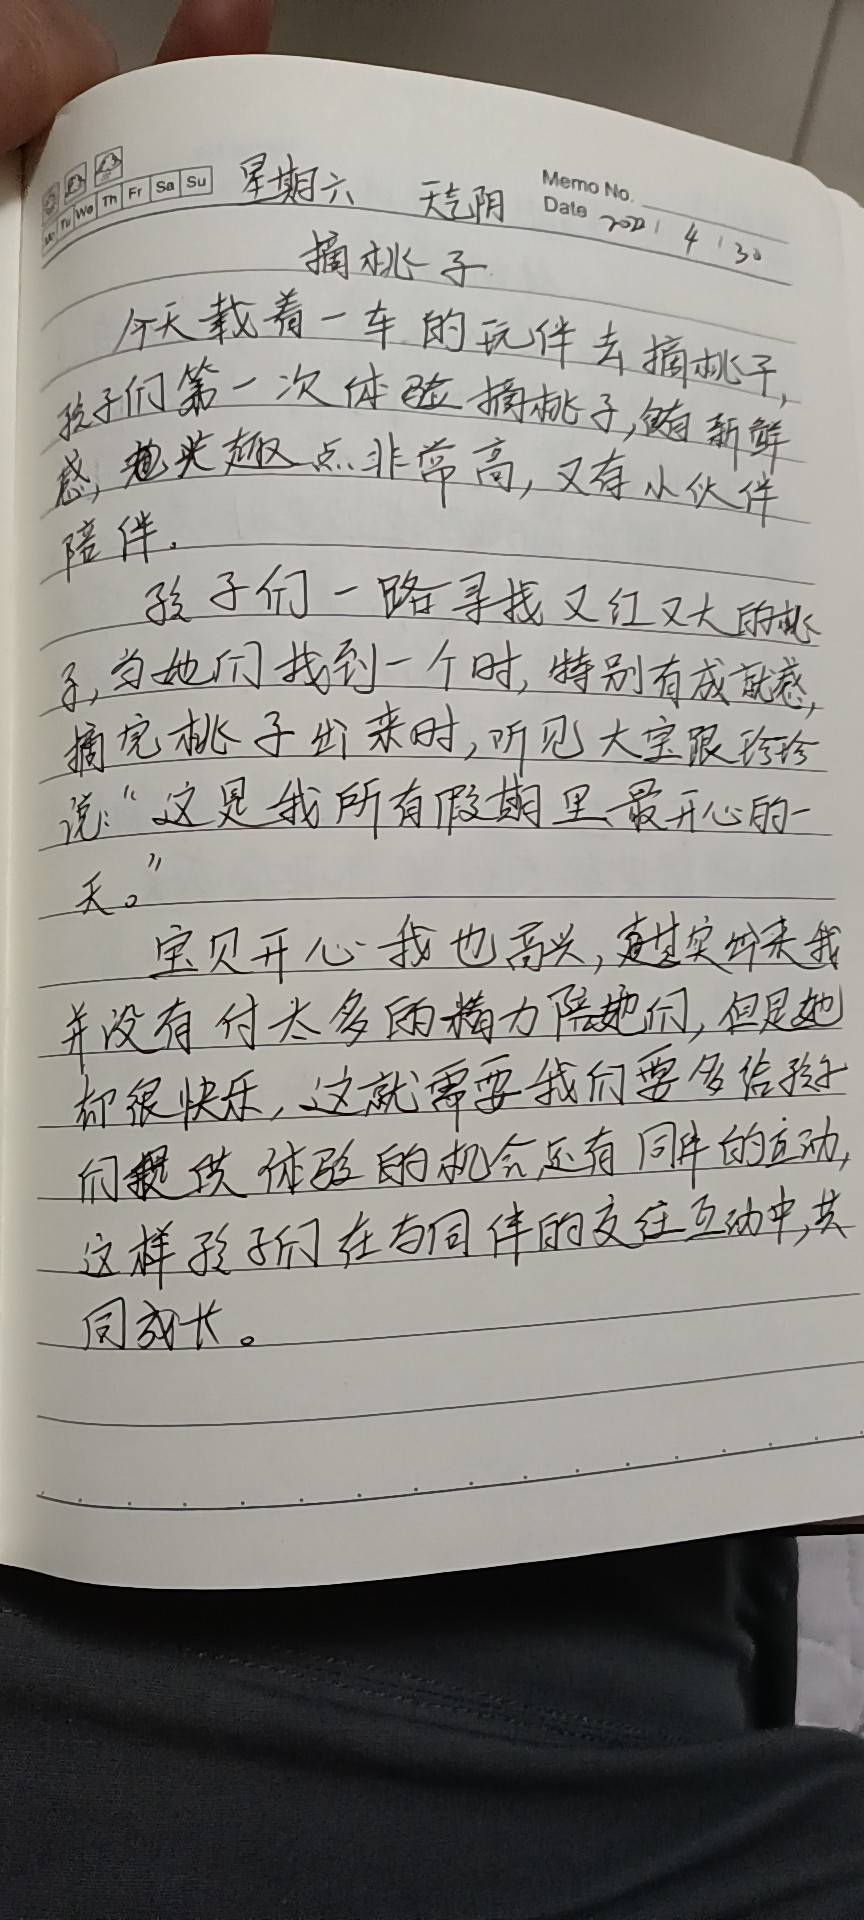 Mo Tu We Th Fr Sa Su 星期六 天气阴 Memo No.
Date 2022 4 30
摘桃子
今天载着一车的玩伴去摘桃子,
孩子们第一次体验摘桃子,有新鲜
感, 兴趣点非常高,又有小伙伴
陪伴。
孩子们一路寻找又红又大的桃
子,当她们找到一个时,特别有成就感,
摘完桃子出来时,听见大宝跟珍珍
说:“这是我所有假期里最开心的一
天。”
宝贝开心我也高兴,其实出来我
并没有付太多的精力陪她们,但是她
都很快乐,这就需要我们要多给孩子
们提供体验的机会还有同伴的互动,
这样孩子们在与同伴的交往互动中,共
同成长。